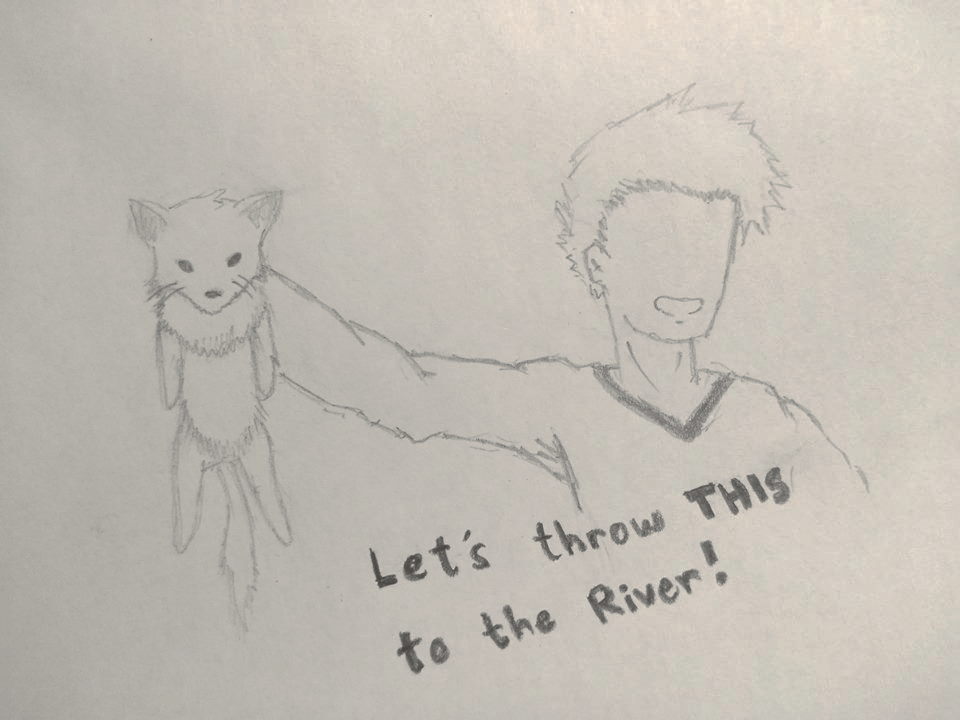 Let's throw THIS
to the River!